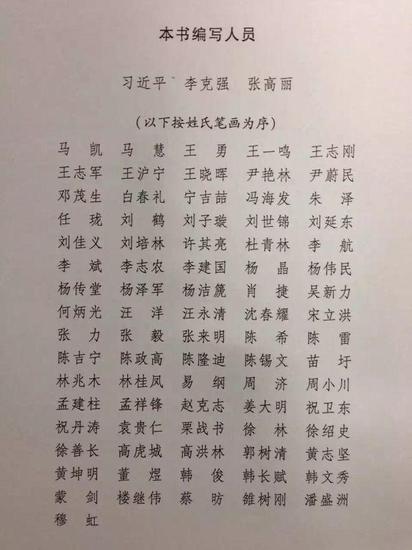 本书编写人员
习近平 李克强 张高丽
(以下按姓氏笔画为序)
马凯 马慧 王勇 王一鸣 王志刚
王志军 王沪宁 王晓晖 尹艳林 尹蔚民
邓茂生 白春礼 宁吉喆 冯海发 朱泽
任珑 刘鹤 刘子璇 刘世锦 刘延东
刘佳义 刘培林 许其亮 杜青林 李航
李斌 李志农 李建国 杨晶 杨伟民
杨传堂 杨泽军 杨洁篪 肖捷 吴新力
何炳光 汪洋 汪永清 沈春耀 宋立洪
张力 张毅 张来明 陈希 陈雷
陈吉宁 陈政高 陈隆迪 陈锡文 苗圩
林兆木 林桂凤 易纲 周济 周小川
孟建柱 孟祥锋 赵克志 姜大明 祝卫东
祝丹涛 袁贵仁 栗战书 徐林 徐绍史
徐善长 高虎城 高洪林 郭树清 黄志坚
黄坤明 董煜 韩俊 韩长赋 韩文秀
蒙剑 楼继伟 蔡昉 雒树刚 潘盛洲
穆虹